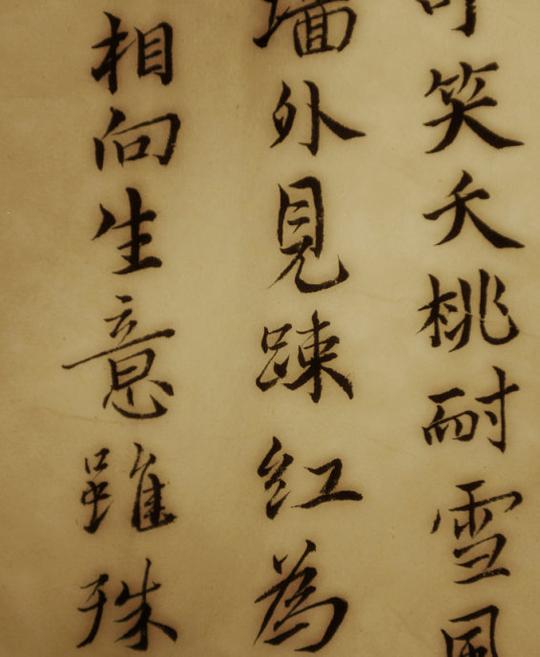 可笑夭桃耐雪風
墙外見踈紅為
相向生意雖殊